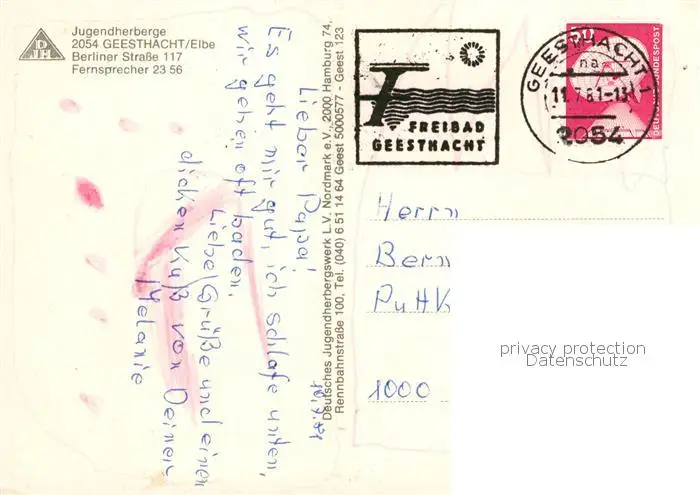 Jugendherberge
2054 GEESTHACHT/Elbe
Berliner Straße 117
Fernsprecher 23 56
DJH
FREIBAD
GEESTHACHT
GEESTHACHT 1
na
11.7.81-13
2054
50
DEUTSCHE BUNDESPOST
Deutsches Jugendherbergswerk L.V. Nordmark e.V., 2000 Hamburg 74,
Rennbahnstraße 100, Tel. (040) 6 51 14 64 Geest 5000577 - Geest 123
10.7.81
Lieber Papa!
Es geht mir gut, ich schlafe unten,
wir gehen oft baden.
Liebe Grüße und einen
dicken Kuß von Deiner
Melanie
Herrn
Bern
PuttK
1000
privacy protection
Datenschutz